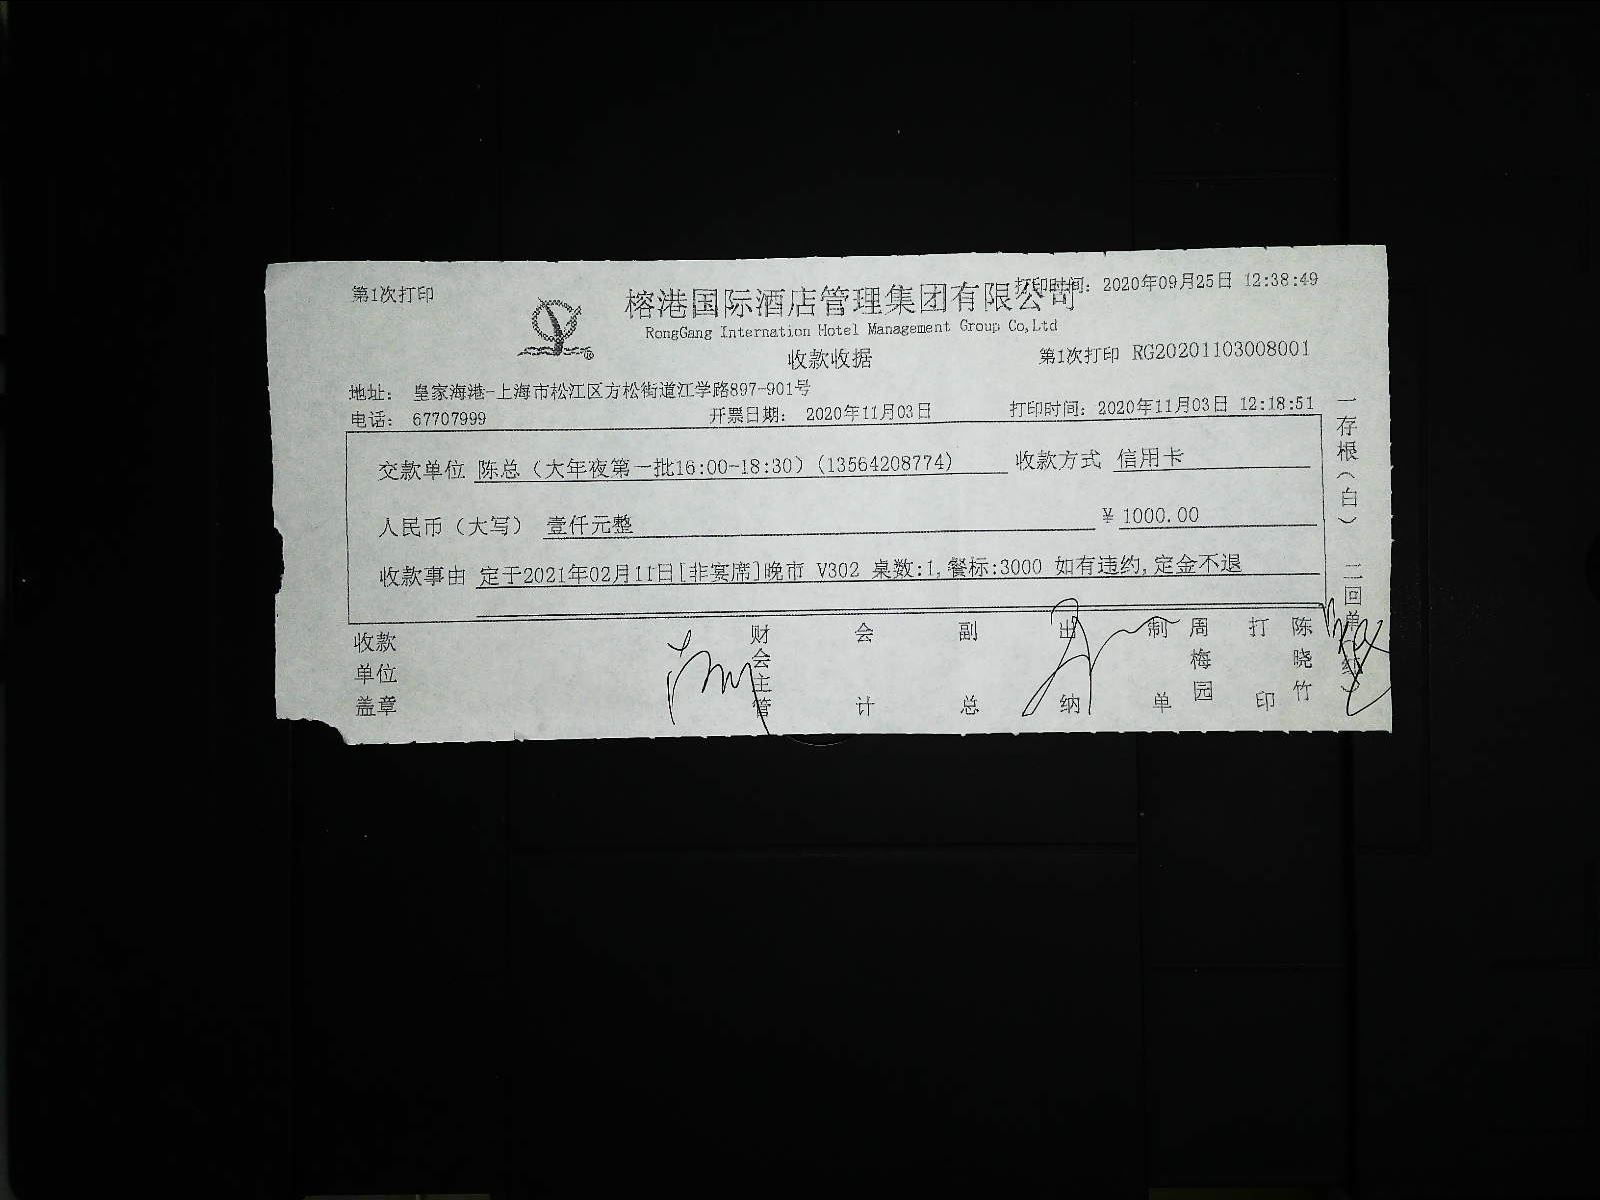 第1次打印
打印时间：2020年09月25日 12:38:49
榕港国际酒店管理集团有限公司
RongGang Internation Hotel Management Group Co,Ltd
收款收据
第1次打印 RG20201103008001
地址： 皇家海港-上海市松江区方松街道江学路897-901号
电话： 67707999 开票日期： 2020年11月03日 打印时间：2020年11月03日 12:18:51
交款单位 陈总（大年夜第一批16:00-18:30）(13564208774) 收款方式 信用卡
人民币（大写） 壹仟元整 ¥ 1000.00
收款事由 定于2021年02月11日[非宴席]晚市 V302 桌数:1,餐标:3000 如有违约,定金不退
收款单位盖章 财会主管 会计 副总 出纳 制单 周梅园 打印 陈晓竹
一存根（白） 二回单（红）